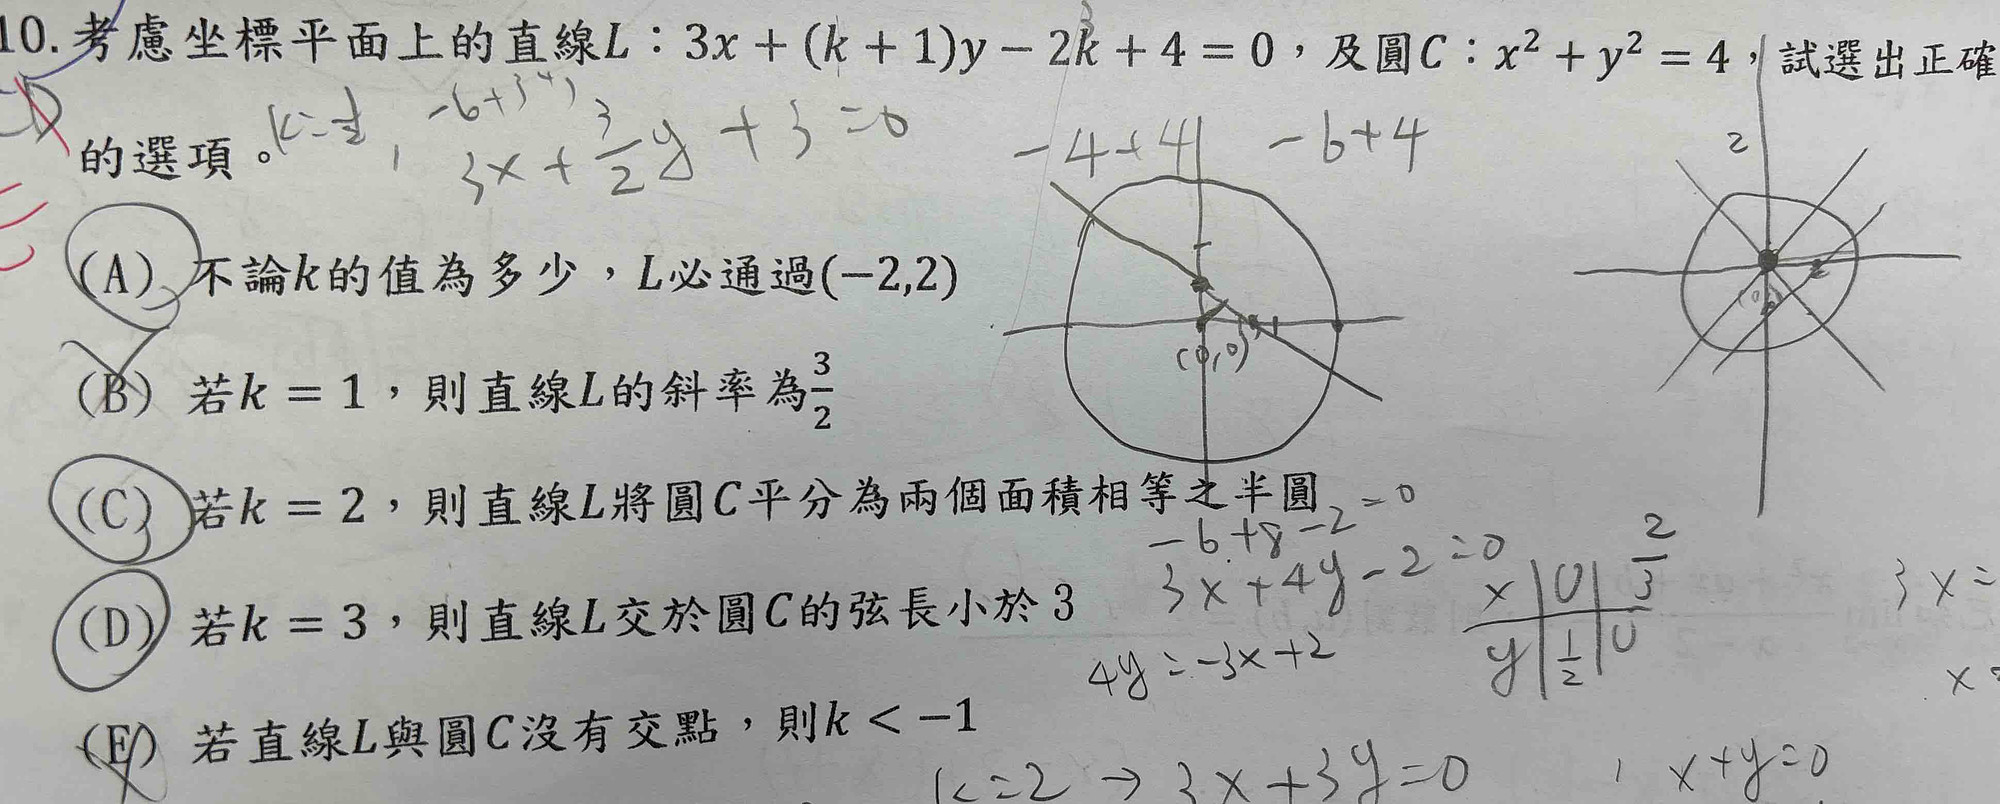 10. 考慮坐標平面上的直線L：3x + (k + 1)y − 2k + 4 = 0，及圓C：x² + y² = 4，試選出正確
的選項。
k=½, 3x + 3/2 y + 3 = 0
-4+4
-6+4
2
(A) 不論k的值為多少，L必通過(−2,2)
(0,0)
(B) 若k = 1，則直線L的斜率為3/2
(C) 若k = 2，則直線L將圓C平分為兩個面積相等之半圓
-6+8-2=0
3x+4y-2=0
x | 0 | 2/3
y | 1/2 | 0
3x=
(D) 若k = 3，則直線L交於圓C的弦長小於 3
4y=-3x+2
(E) 若直線L與圓C沒有交點，則k < −1
k=2 → 3x+3y=0
x+y=0